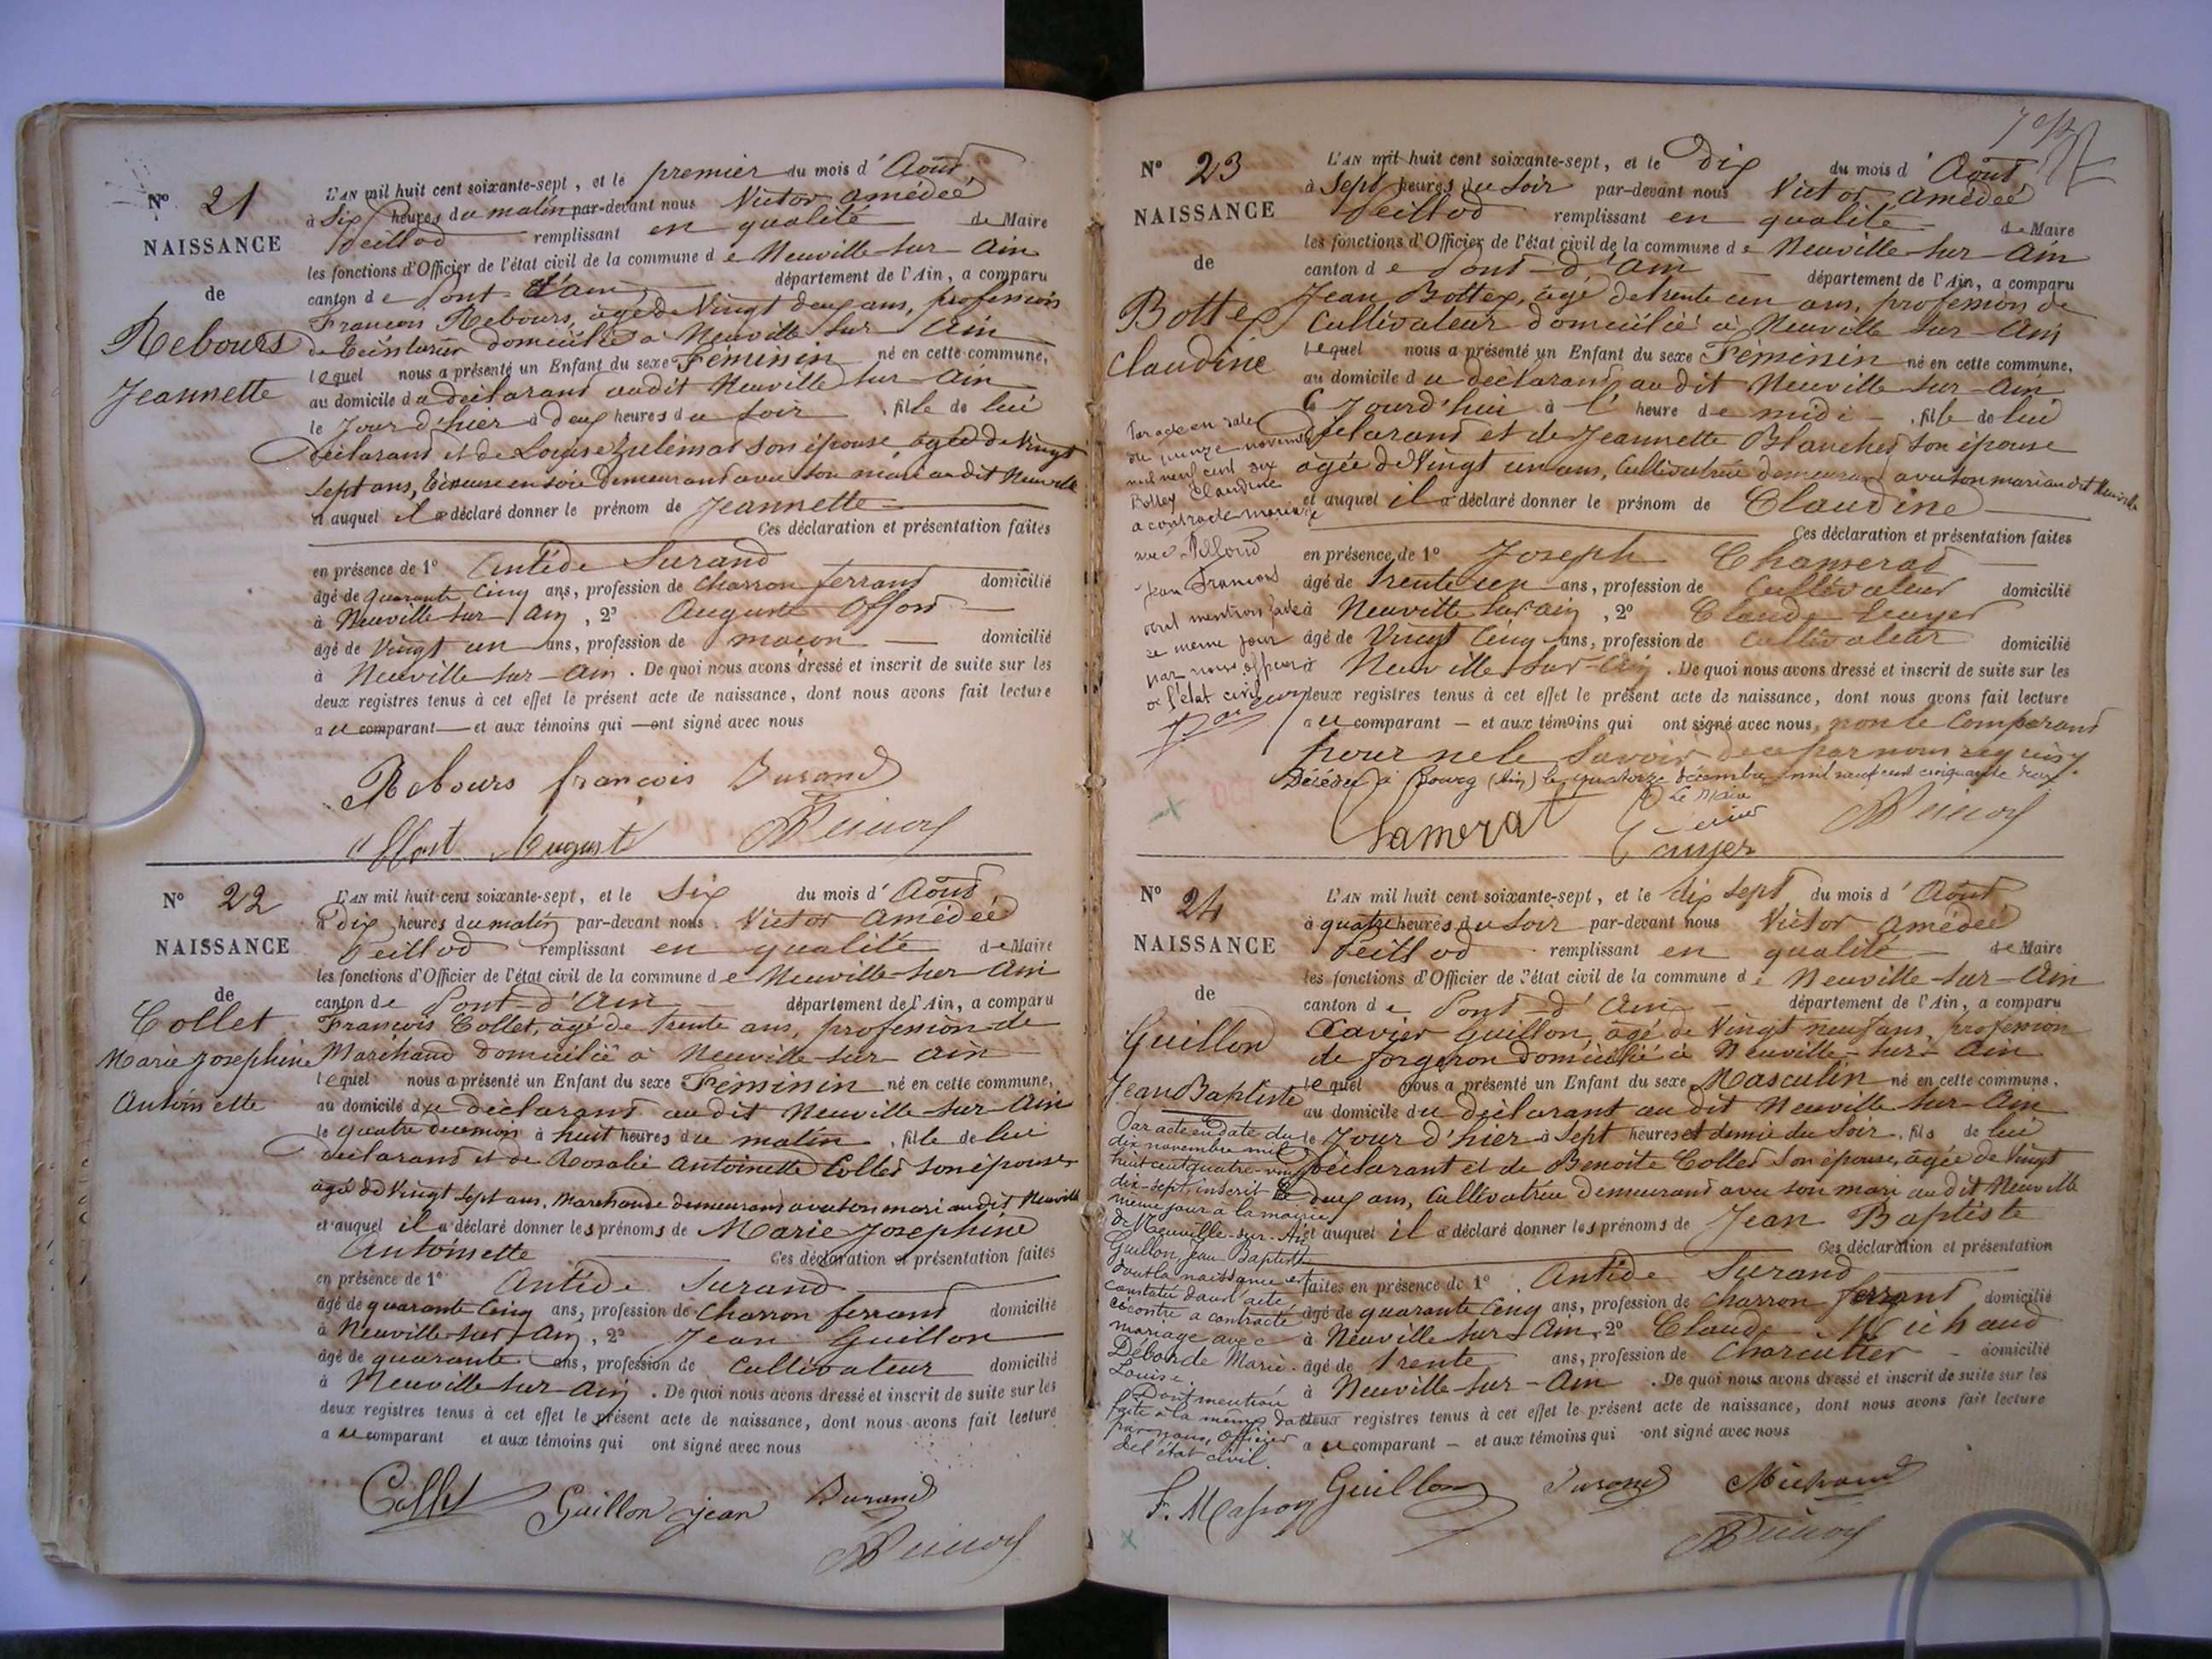 N° 21
NAISSANCE
de
Rebours
Jeannette
L'AN mil huit cent soixante-sept, et le premier du mois d'Août
à Six heures du matin par-devant nous Victor Amédée
Peillod remplissant en qualité de Maire
les fonctions d'Officier de l'état civil de la commune de Neuville-sur-Ain
canton de Pont-d'Ain département de l'Ain, a comparu
François Rebours, âgé de Vingt deux ans, profession
de teinturier domicilié à Neuville sur Ain
lequel nous a présenté un Enfant du sexe Féminin né en cette commune,
au domicile du déclarant audit Neuville sur Ain
le Jour d'hier à deux heures du Soir, fille de lui
déclarant et de Louise son épouse, âgée de Vingt
sept ans, en soie demeurant avec son mari audit Neuville
et auquel il a déclaré donner le prénom de Jeannette
Ces déclaration et présentation faites
en présence de 1° Antide Durand
âgé de quarante Cinq ans, profession de Charron ferrant domicilié
à Neuville sur Ain, 2° Auguste
âgé de Vingt un ans, profession de maçon domicilié
à Neuville-sur-Ain. De quoi nous avons dressé et inscrit de suite sur les
deux registres tenus à cet effet le présent acte de naissance, dont nous avons fait lecture
au comparant et aux témoins qui ont signé avec nous
Rebours françois Durand
August
N° 22
NAISSANCE
de
Collet
Marie Josephine
Antoinette
L'AN mil huit cent soixante-sept, et le Six du mois d'Août
à dix heures du matin par-devant nous Victor Amédée
Peillod remplissant en qualité de Maire
les fonctions d'Officier de l'état civil de la commune de Neuville-sur-Ain
canton de Pont-d'Ain département de l'Ain, a comparu
François Collet, âgé de trente ans, profession de
Marchand domicilié à Neuville-sur-Ain
lequel nous a présenté un Enfant du sexe Féminin né en cette commune,
au domicile du déclarant audit Neuville-sur-Ain
le quatre du mois à huit heures du matin, fille de lui
déclarant et de Rosalie Antoinette Collet son épouse
âgée de Vingt Sept ans, Marchande demeurant avec son mari audit Neuville
et auquel il a déclaré donner les prénoms de Marie Josephine
Antoinette Ces déclaration et présentation faites
en présence de 1° Antide Durand
âgé de quarante Cinq ans, profession de Charron ferrant domicilié
à Neuville sur Ain, 2° Jean Guillon
âgé de quarante ans, profession de Cultivateur domicilié
à Neuville sur Ain. De quoi nous avons dressé et inscrit de suite sur les
deux registres tenus à cet effet le présent acte de naissance, dont nous avons fait lecture
au comparant et aux témoins qui ont signé avec nous
Collet Guillon jean Durand
N° 23
NAISSANCE
de
Bottex
Claudine
L'AN mil huit cent soixante-sept, et le Dix du mois d'Août
à Sept heures du Soir par-devant nous Victor Amédée
Peillod remplissant en qualité de Maire
les fonctions d'Officier de l'état civil de la commune de Neuville-sur-Ain
canton de Pont-d'Ain département de l'Ain, a comparu
Jean Bottex, âgé de trente un ans, profession de
Cultivateur domicilié à Neuville sur-Ain
lequel nous a présenté un Enfant du sexe Féminin né en cette commune,
au domicile du déclarant audit Neuville-sur-Ain
Ce Jourd'hui à l'heure de midi, fille de lui
déclarant et de Jeannette Blanchet son épouse
âgée de Vingt un ans, Cultivatrice demeurant avec son mari audit Neuville
et auquel il a déclaré donner le prénom de Claudine
Ces déclaration et présentation faites
en présence de 1° Joseph Chamerat
âgé de trente un ans, profession de Cultivateur domicilié
à Neuville sur ain, 2° Claude
âgé de Vingt Cinq ans, profession de Cultivateur domicilié
à Neuville sur-Ain. De quoi nous avons dressé et inscrit de suite sur les
deux registres tenus à cet effet le présent acte de naissance, dont nous avons fait lecture
au comparant et aux témoins qui ont signé avec nous, non le Comparant
pour ne le Savoir de ce par nous requis.
Décédée à Bourg (Ain) le quatorze décembre mil neuf cent cinquante deux
Le Maire
Chamerat
Par acte en date
du quinze novembre
mil neuf cent six
Bottex Claudine
a contracté mariage
avec
Jean François
dont mention faite
ce même jour
par nous officier
de l'état civil
N° 24
NAISSANCE
de
Guillon
Jean Baptiste
L'AN mil huit cent soixante-sept, et le dix Sept du mois d'Août
à quatre heures du Soir par-devant nous Victor Amédée
Peillod remplissant en qualité de Maire
les fonctions d'Officier de l'état civil de la commune de Neuville-sur-Ain
canton de Pont-d'Ain département de l'Ain, a comparu
Xavier Guillon, âgé de Vingt neuf ans, profession
de forgeron domicilié à Neuville-sur-Ain
lequel nous a présenté un Enfant du sexe Masculin né en cette commune,
au domicile du déclarant audit Neuville sur-Ain
le Jour d'hier à Sept heures et demie du Soir, fils de lui
déclarant et de Benoite Collet son épouse, âgée de Vingt
deux ans, Cultivatrice demeurant avec son mari audit Neuville
et auquel il a déclaré donner les prénoms de Jean Baptiste
Ces déclaration et présentation
faites en présence de 1° Antide Durand
âgé de quarante Cinq ans, profession de Charron ferrant domicilié
à Neuville sur Ain, 2° Claude Michaud
âgé de trente ans, profession de Charcutier domicilié
à Neuville-sur-Ain. De quoi nous avons dressé et inscrit de suite sur les
deux registres tenus à cet effet le présent acte de naissance, dont nous avons fait lecture
au comparant et aux témoins qui ont signé avec nous
Par acte en date du
dix novembre mil
huit cent quatre-vingt
dix-sept, inscrit le
même jour à la mairie
de Neuville-sur-Ain
Guillon, Jean Baptiste
dont la naissance est
constatée dans l'acte
ci-contre a contracté
mariage avec
Déborde Marie
Louise.
Dont mention
faite à la même date
par nous, Officier
de l'état civil.
Guillon Durand Michaud